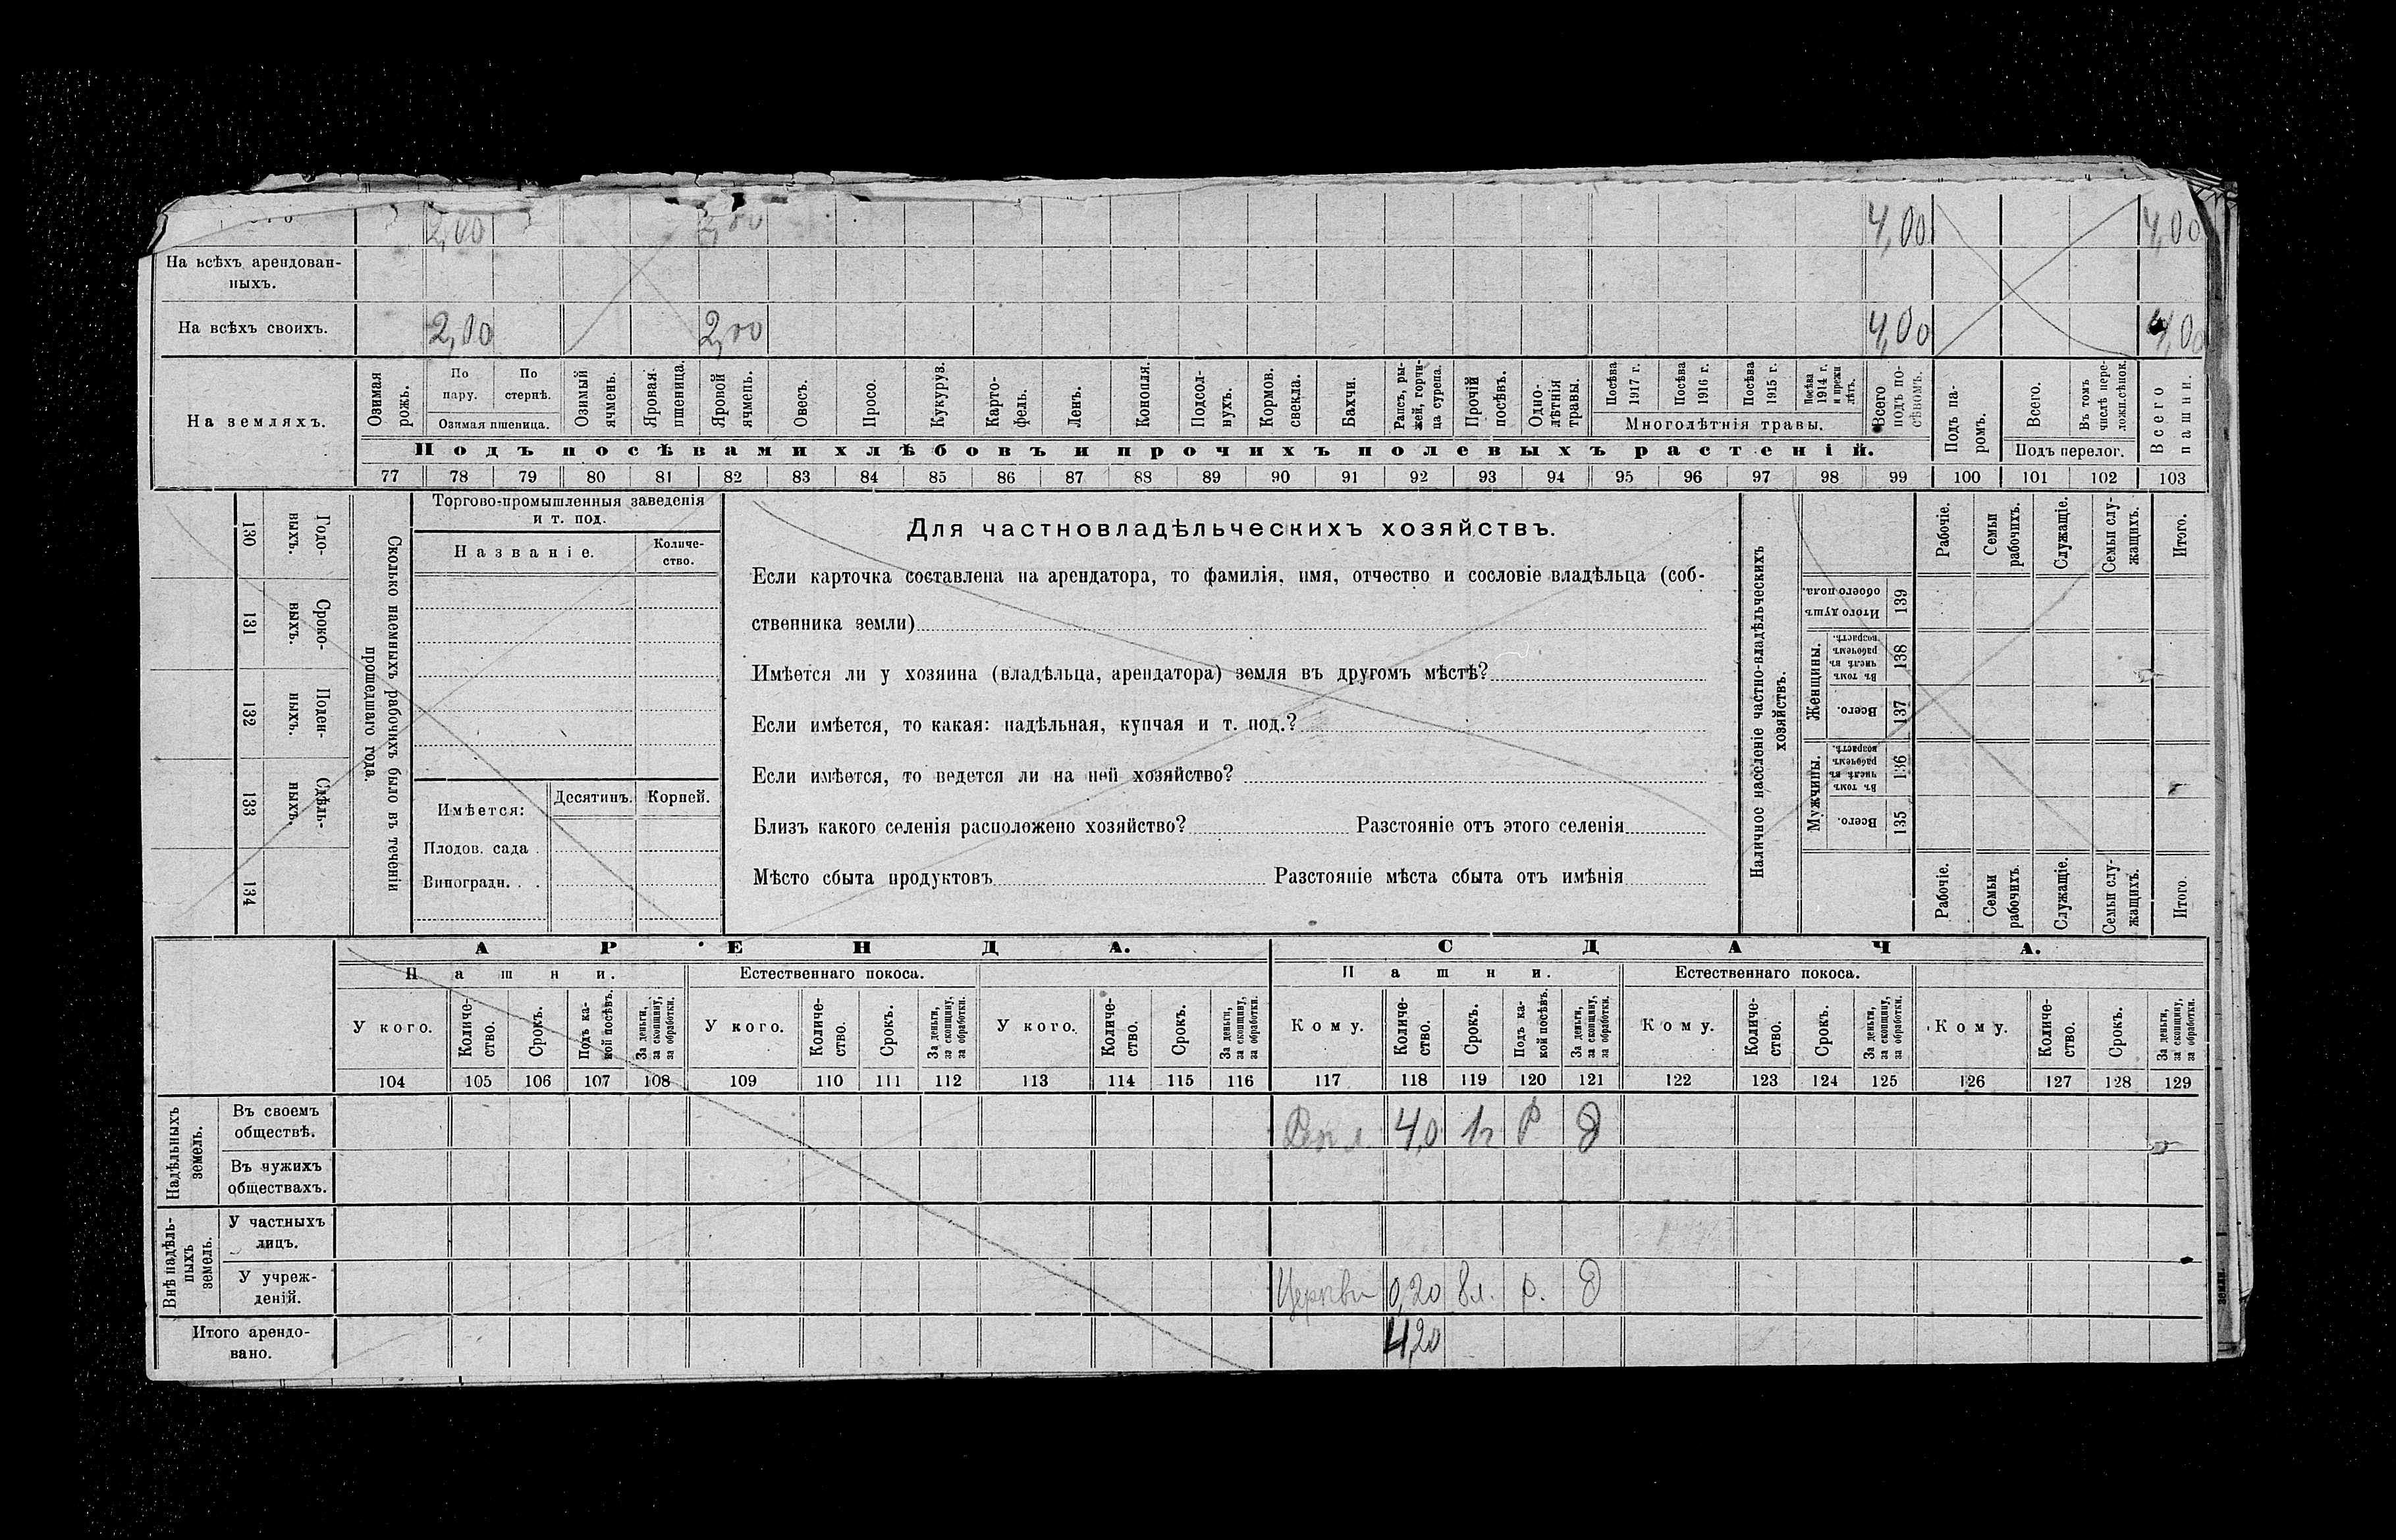 2,00 2,00 4,00 4,00
На всѣхъ арендован-
ныхъ.
На всѣхъ своихъ. 2,00 2,00 4,00 4,00
На земляхъ.
Озимая рожь.
По пару.
По стернѣ.
Озимая пшеница.
Озимый ячмень.
Яровая пшеница.
Яровой ячмень.
Овесъ.
Просо.
Кукуруз.
Карто-
фель.
Ленъ.
Конопля.
Подсол-
нухъ.
Кормов. свекла.
Бахчи.
Рапсъ, ры-
жей, горчи-
ца сурепа.
Прочій посѣвъ.
Одно-
лѣтнія травы.
Посѣва 1917 г.
Посѣва 1916 г.
Посѣва 1915 г.
Посѣва 1914 г. и прежн лѣтъ.
Многолѣтнія травы.
Всего подъ по-
сѣвомъ.
Подъ па-
ромъ.
Всего.
Въ томъ числѣ пере-
ложн.сѣнок.
Подъ перелог.
Всего пашни.
Подъ посѣвами хлѣбовъ и прочихъ полевыхъ растеній.
77 78 79 80 81 82 83 84 85 86 87 88 89 90 91 92 93 94 95 96 97 98 99 100 101 102 103
130 Годо-
выхъ.
131 Сроко-
выхъ.
132 Поден-
ныхъ.
133 Сдѣль-
ныхъ.
134
Сколько наемныхъ рабочихъ было въ теченіи
прошедшаго года.
Торгово-промышленныя заведенія
и т. под.
Названіе.
Количе-
ство.
Имѣется:
Десятинъ.
Корней.
Плодов. сада .
Виноградн. . .
Для частновладѣльческихъ хозяйствъ.
Если карточка составлена на арендатора, то фамилія, имя, отчество и сословіе владѣльца (соб-
ственника земли)
Имѣется ли у хозяина (владѣльца, арендатора) земля въ другомъ мѣстѣ?
Если имѣется, то какая: надѣльная, купчая и т. под.?
Если имѣется, то ведется ли на ней хозяйство?
Близъ какого селенія расположено хозяйство? Разстояніе отъ этого селенія
Мѣсто сбыта продуктовъ Разстояніе мѣста сбыта отъ имѣнія
Наличное населеніе частно-владѣльческихъ
хозяйствъ.
Рабочіе.
Семьи рабочихъ.
Служащіе.
Семьи слу-
жащихъ.
Итого.
Итого душъ обоего пола. 139
Женщины.
Въ томъ числѣ въ рабочемъ возрастѣ. 138
Всего. 137
Мужчины.
Въ томъ числѣ въ рабочемъ возрастѣ. 136
Всего. 135
Рабочіе.
Семьи рабочихъ.
Служащіе.
Семьи слу-
жащихъ.
Итого.
АРЕНДА. СДАЧА.
Пашни. Естественнаго покоса. Пашни. Естественнаго покоса.
У кого.
Количе-
ство.
Срокъ.
Подъ ка-
кой посѣвъ.
За деньги,
за скопщину,
за обработки.
У кого.
Количе-
ство.
Срокъ.
За деньги,
за скопщину,
за обработки.
У кого.
Количе-
ство.
Срокъ.
За деньги,
за скопщину,
за обработки.
Кому.
Количе-
ство.
Срокъ.
Подъ ка-
кой посѣвъ.
За деньги,
за скопщину,
за обработки.
Кому.
Количе-
ство.
Срокъ.
За деньги,
за скопщину,
за обработки.
Кому.
Количе-
ство.
Срокъ.
За деньги,
за скопщину,
за обработки.
104 105 106 107 108 109 110 111 112 113 114 115 116 117 118 119 120 121 122 123 124 125 126 127 128 129
Надѣльныхъ
земель.
Въ своемъ
обществѣ.
4,0 1г Р д
Въ чужихъ
обществахъ.
Внѣ надѣль-
ныхъ
земель.
У частныхъ
лицъ.
У учреж-
деній.
Церкви 0,20 8л. р. д
Итого арендо-
вано.
4,20